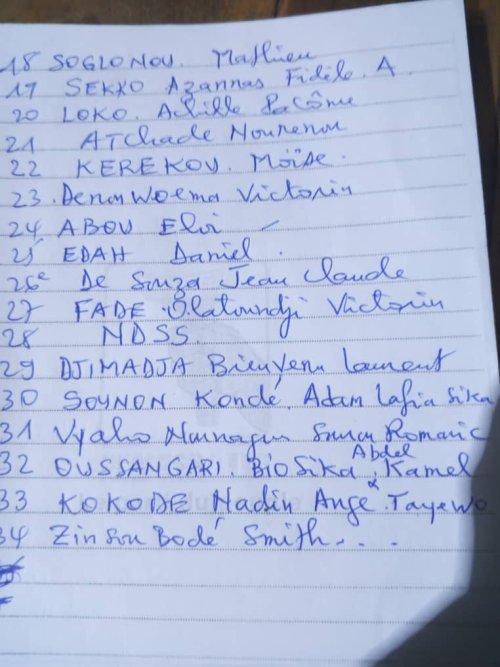 18 SOGLONOU. Mathieu
19 SEKKO Azannas Fidèle. A
20 LOKO. Achille Pacôme
21 ATchadé Nourenou
22 KEREKOU. Moïse.
23. Victorin
24 ABOU Eloi
25 EDAH Daniel.
26e De Souza Jean Claude
27 FADE. Olatoundji Victorin
28 NDSS.
29 DJIMADJA Bienvenu Laurent
30 SOUNON Kondé. Adam Lafia Sika
31 Romaric
32 OUSSANGARI. Bio Sika Abdel Kamel
33 KOKODE Nadin Ange. Tayewo
34 Zinsou Bodé Smith...